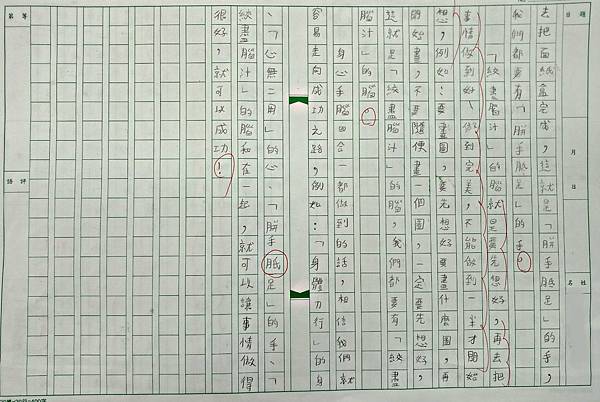 題目
月 日
姓名
去把面紙盒完成,這就是「胼手胝足」的手,
我們都要有「胼手胝足」的手。
「絞盡腦汁」的腦就是要先想好,再去把
事情做到好、做到完美,不能做到一半才開始
想,例如:要畫圖,要先想好要畫什麼圖,再
開始畫,不要隨便畫,圖一定要先想好,
這就是「絞盡腦汁」的腦,我們都要有「絞盡
腦汁」的腦。
身心腦四合一都做到的話,相信我們就
容易走向成功之路,例如:「身體力行」的身
、「心無二用」的心、「胼手胝足」的手、「
絞盡腦汁」和在一起,就可以讓事情做得
很好,就可以成功!
等第
評語